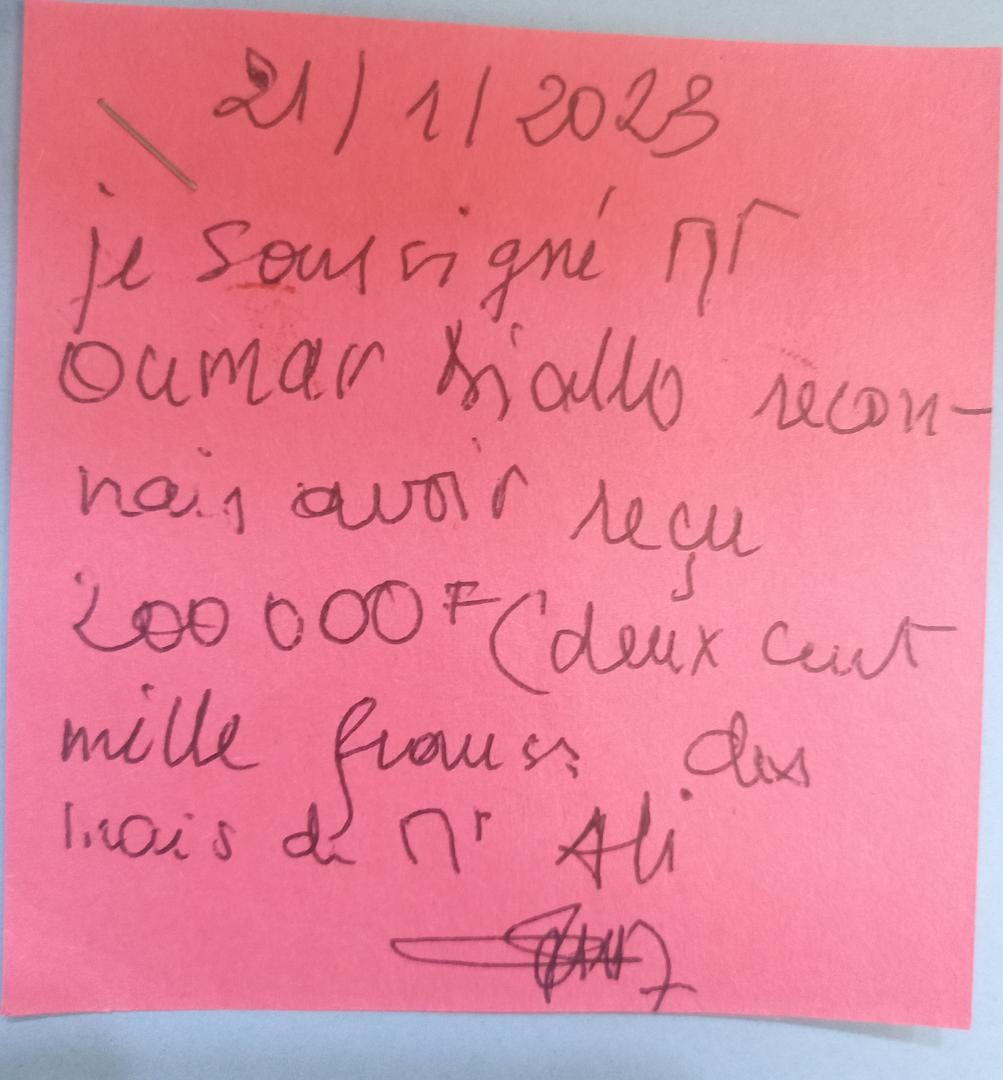 21/1/2023
je soussigné Mr
Oumar Diallo recon-
nais avoir reçu
200 000 F (deux cent
mille francs des
mais de Mr Ali